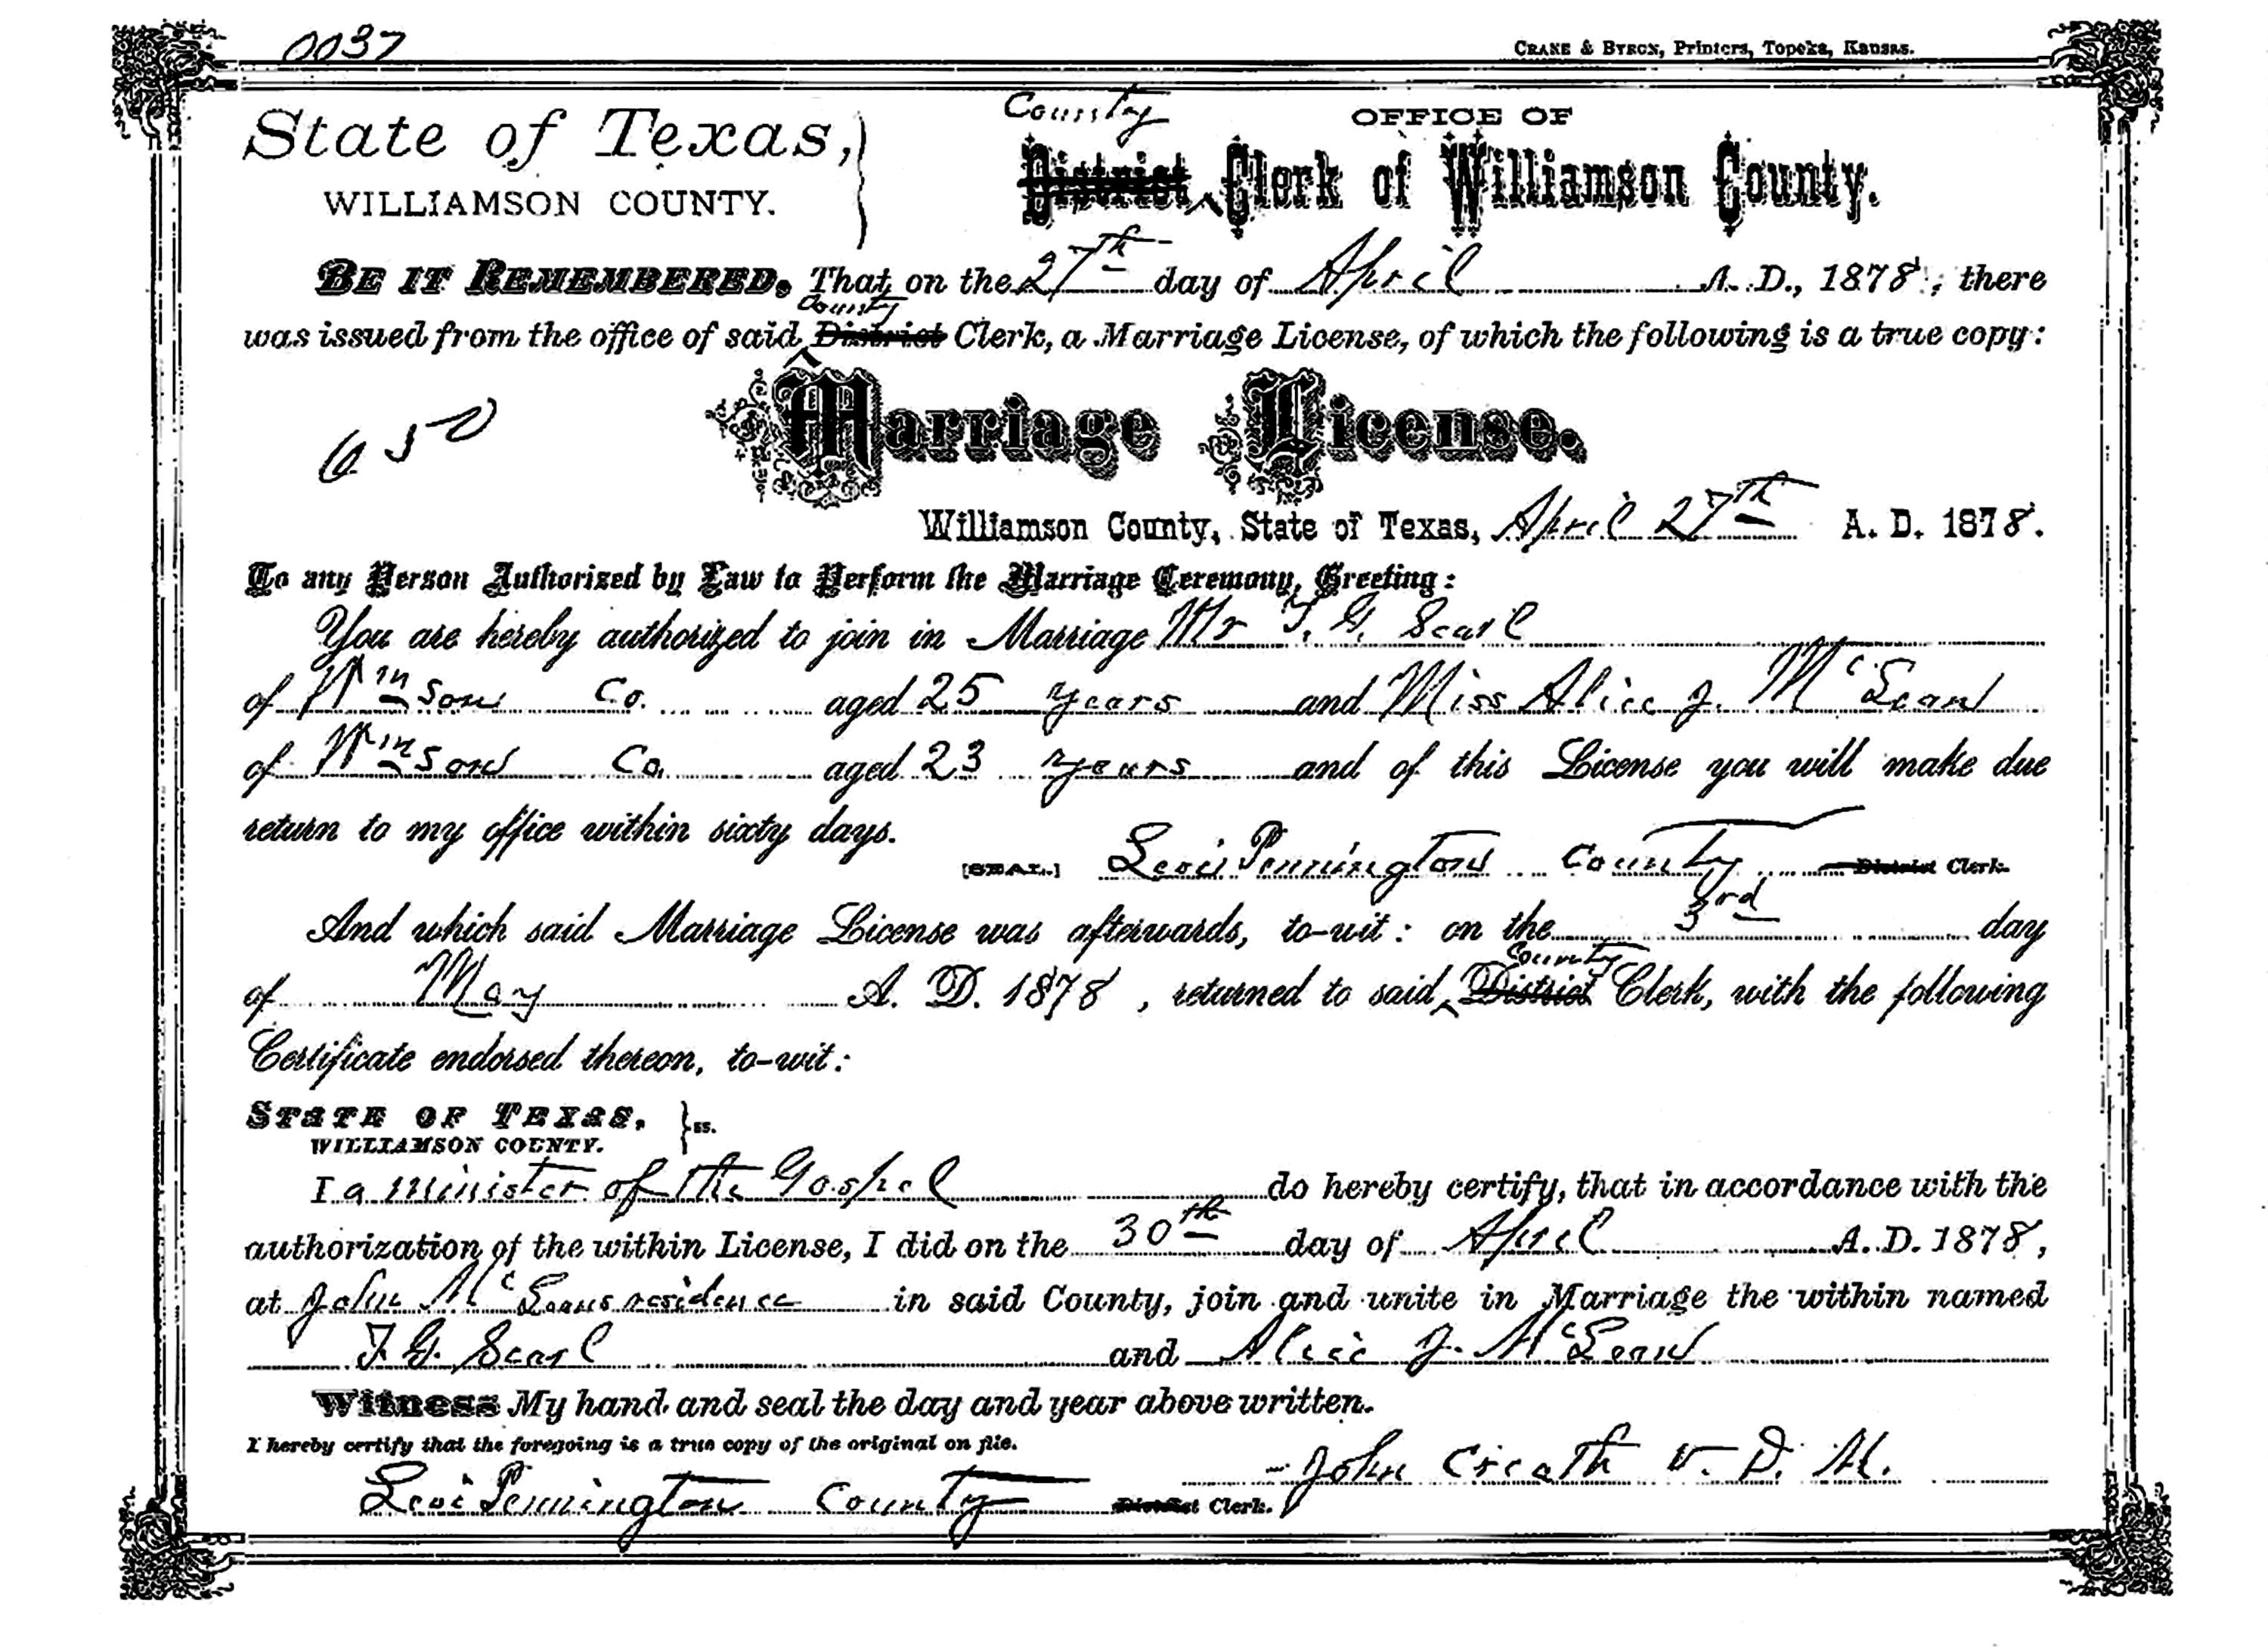 0037
CRANE & BYRON, Printers, Topeka, Kansas.
State of Texas,
WILLIAMSON COUNTY.
OFFICE OF
County
District Clerk of Williamson County.
BE IT REMEMBERED, That on the 27th day of April A. D., 1878, there
County
was issued from the office of said District Clerk, a Marriage License, of which the following is a true copy:
650
Marriage License.
Williamson County, State of Texas, April 27th A. D. 1878.
To any Person Authorized by Law to Perform the Marriage Ceremony, Greeting:
You are hereby authorized to join in Marriage Mr T. G. Searl
of Wmson Co. aged 25 years and Miss Alice J. McLean
of Wmson Co. aged 23 years and of this License you will make due
return to my office within sixty days.
[SEAL.] Levi Pennington County District Clerk.
And which said Marriage License was afterwards, to-wit: on the 3rd day
County
of May A. D. 1878, returned to said District Clerk, with the following
Certificate endorsed thereon, to-wit:
STATE OF TEXAS, } ss.
WILLIAMSON COUNTY.
I a minister of the Gospel do hereby certify, that in accordance with the
authorization of the within License, I did on the 30th day of April A. D. 1878,
at John McLeans residence in said County, join and unite in Marriage the within named
T. G. Searl and Alice J. McLean
Witness My hand and seal the day and year above written.
I hereby certify that the foregoing is a true copy of the original on file.
John Creath V. D. M.
Levi Pennington County District Clerk.